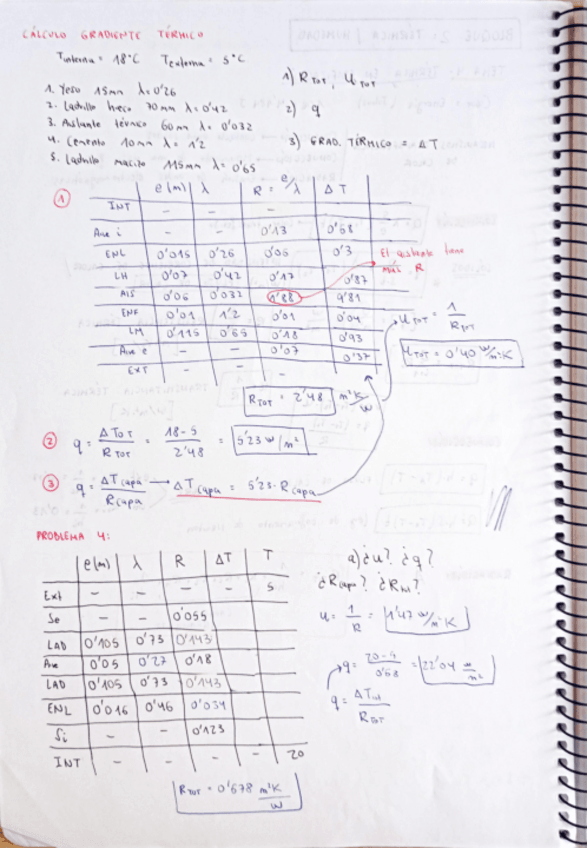 CÁLCULO GRADIENTE TÉRMICO
Tinterna = 18°C Texterna = 5°C
1. Yeso 15mm λ=0'26
2. Ladrillo hueco 70mm λ=0'42
3. Aislante térmico 60mm λ=0'032
4. Cemento 10mm λ=1'2
5. Ladrillo macizo 115mm λ=0'65
1) RTOT, UTOT
2) q
3) GRAD. TÉRMICO = ΔT
1
e(m) λ R = e/λ ΔT
INT - - -
Aire i - - 0'13 0'68
ENL 0'015 0'26 0'06 0'3
LH 0'07 0'42 0'17 0'87
AIS 0'06 0'032 1'88 9'81
ENF 0'01 1'2 0'01 0'04
LM 0'115 0'65 0'18 0'93
Aire e - - 0'07 0'37
EXT - - -
El aislante tiene
más R
UTOT = 1/RTOT
UTOT = 0'40 W/m²K
RTOT = 2'48 m²K/W
2 q = ΔTOT/RTOT = 18-5/2'48 = 5'23 W/m²
3 q = ΔTcapa/Rcapa → ΔTcapa = 5'23·Rcapa
PROBLEMA 4:
e(m) λ R ΔT T
Ext - - - - 5
Se - - 0'055
LAD 0'105 0'73 0'143
Aire 0'05 0'27 0'18
LAD 0'105 0'73 0'143
ENL 0'016 0'46 0'034
Si - - 0'123
INT - - - - 20
RTOT = 0'678 m²K/W
a) ¿u? ¿q?
¿Rcapa? ¿Rtot?
u = 1/R = 1'47 W/m²K
q = 20-5/0'68 = 22'04 W/m²
q = ΔTtot/RTOT